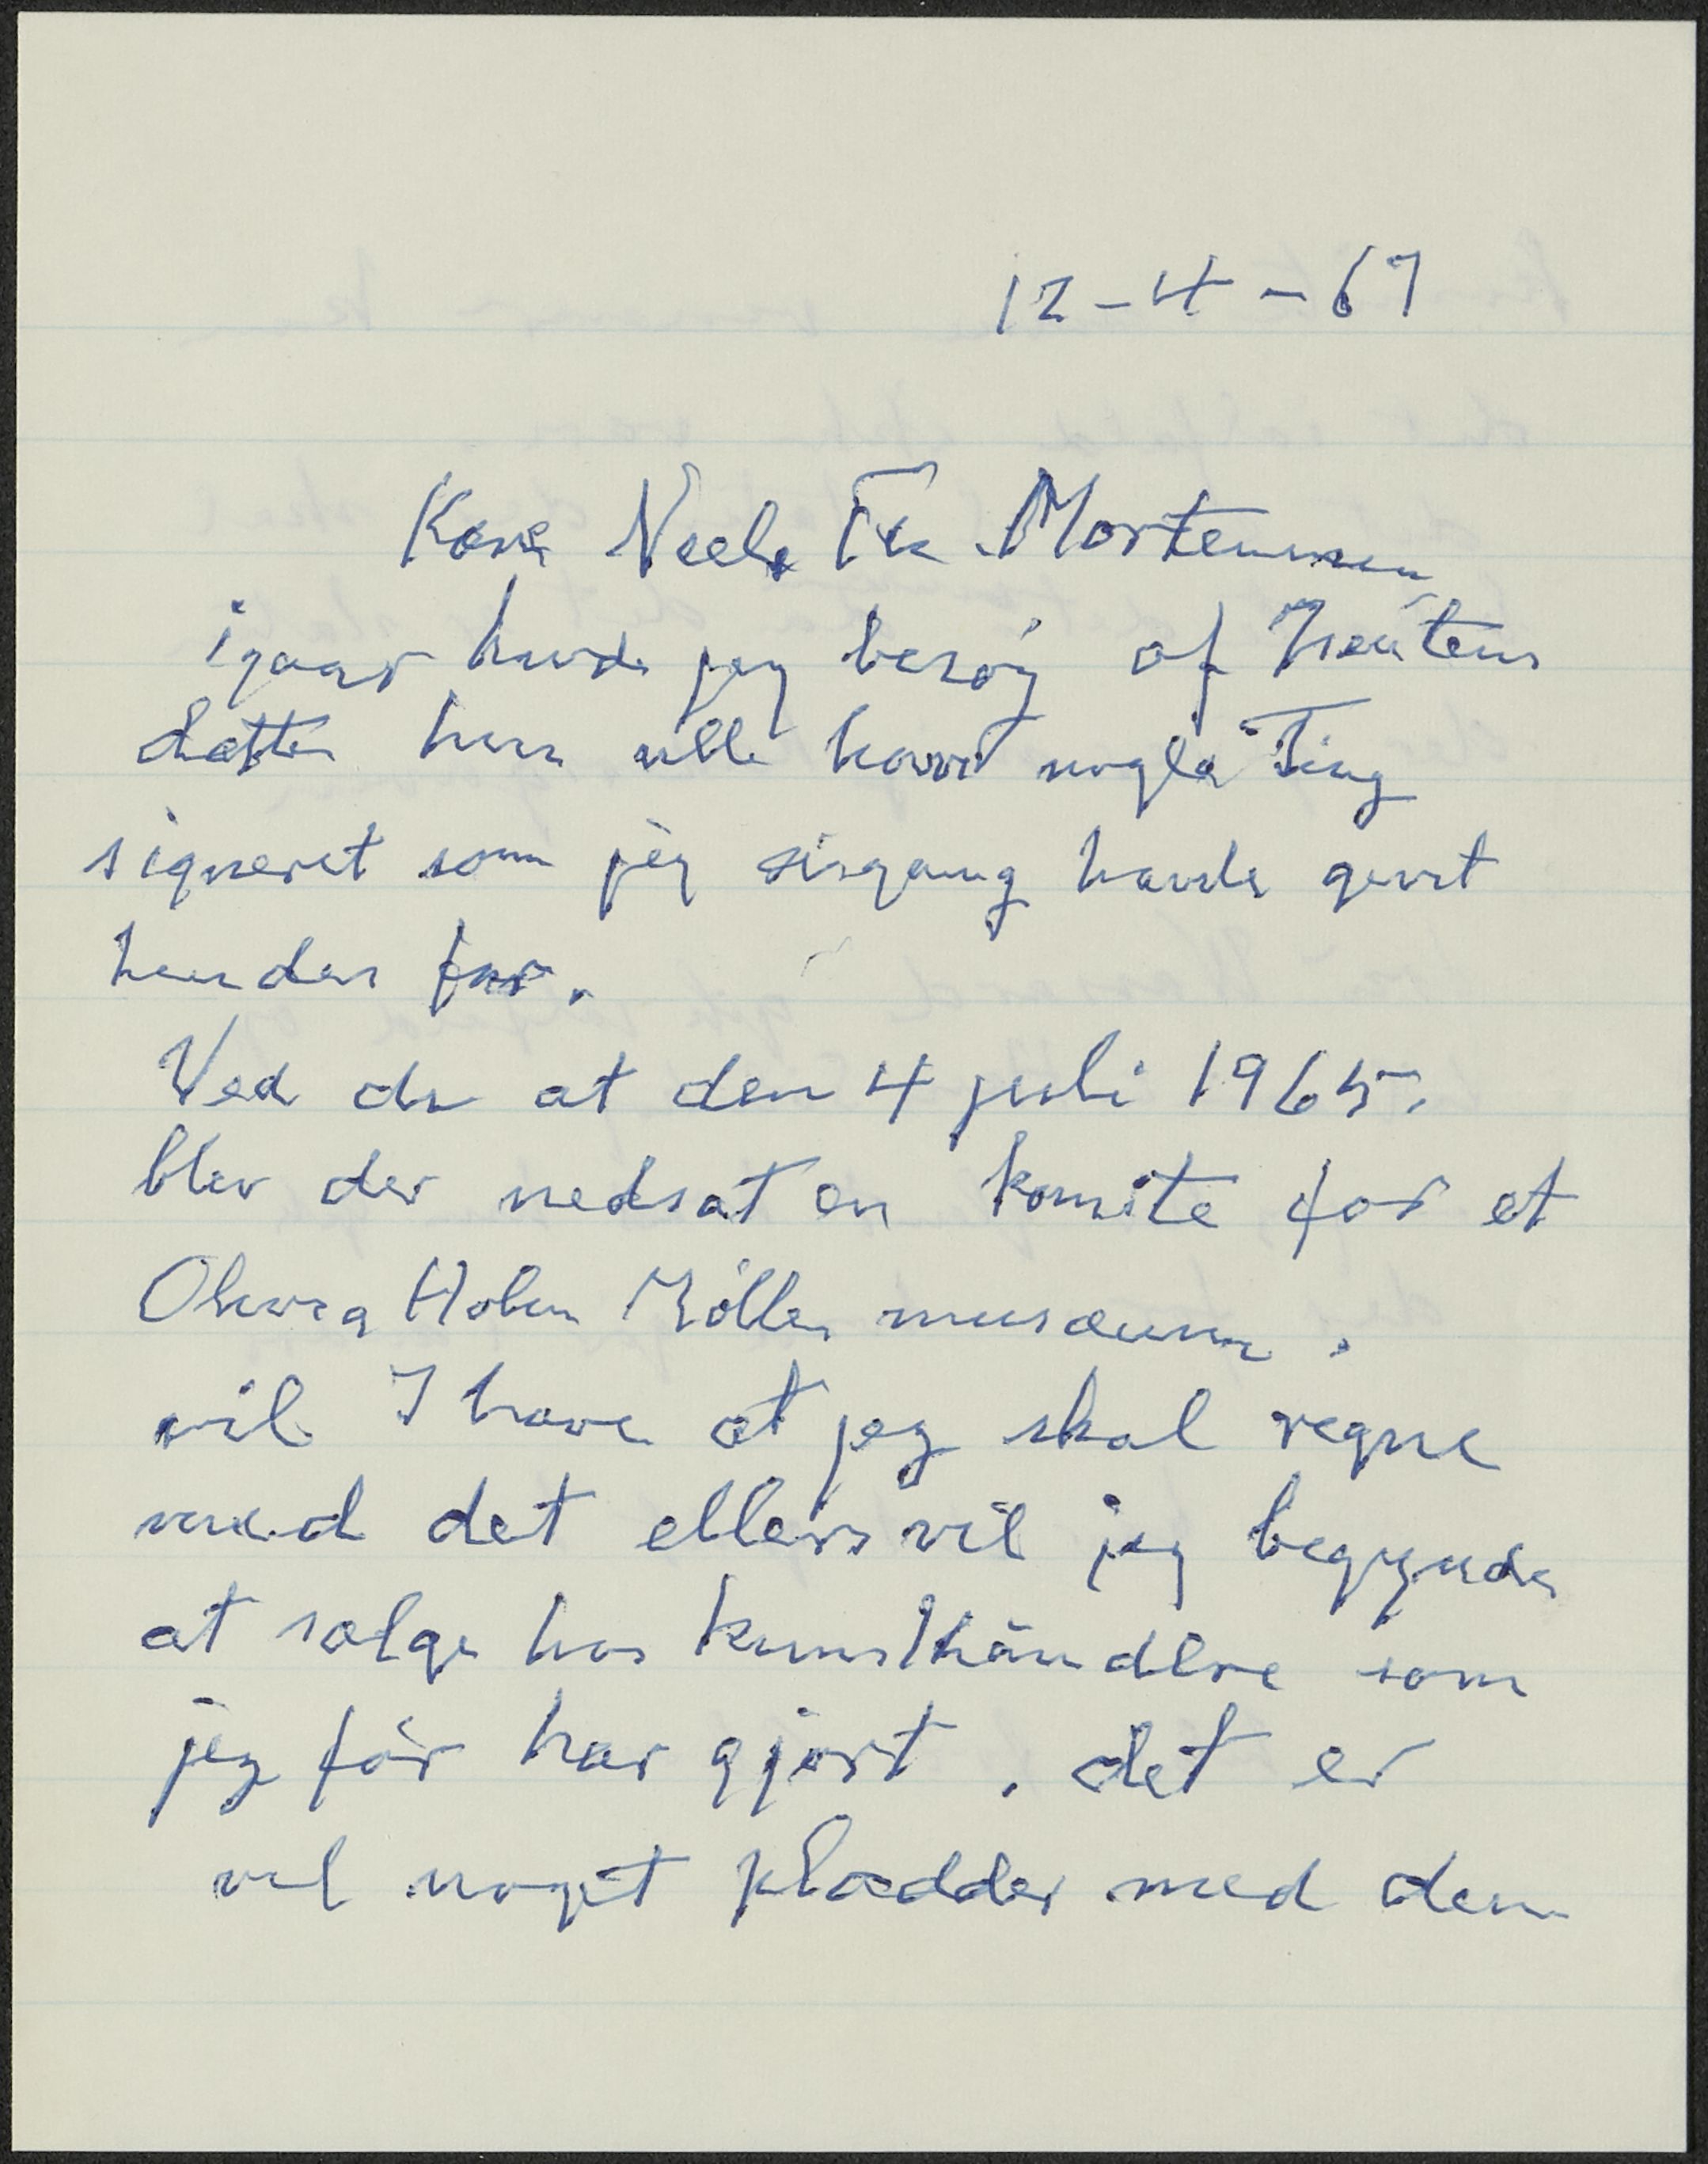 12-4-67
Kære Neels Fr. Mortensen
igaar havde jeg besøg af
datter hun ville have nogle Ting
signeret som jeg sisgang havde gevet
hendes far.
Ved du at den 4 juli 1965.
blev der nedsat en komite for et
Olivia Holm Möller musæum.
vil I have at jeg skal regne
med det ellers vil jeg begynde
at sælge hos kunsthändlere som
jeg för har gjort. det er
vel noget pladder med den